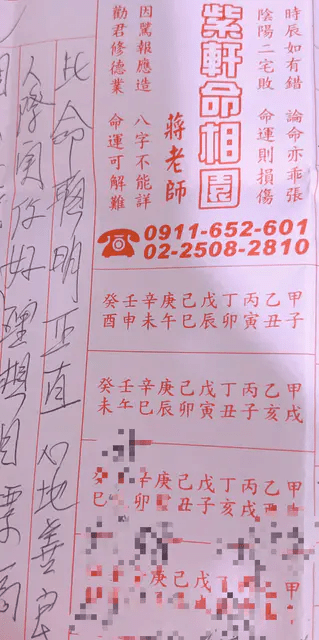 時辰如有錯 論命亦乖張
陰陽二宅敗 命運則損傷
紫軒命相園
蔣老師
因駡報應造 八字不能詳
勸君修德業 命運可解難
0911-652-601
02-2508-2810
甲子 乙丑 丙寅 丁卯 戊辰 己巳 庚午 辛未 壬申 癸酉
甲戌 乙亥 丙子 丁丑 戊寅 己卯 庚辰 辛巳 壬午 癸未
甲 乙 丙戌 丁亥 戊子 己丑 庚 辛卯 癸巳
甲 戊 己 庚
此命聰明正直 心地善良
人際關係好 理想目標高